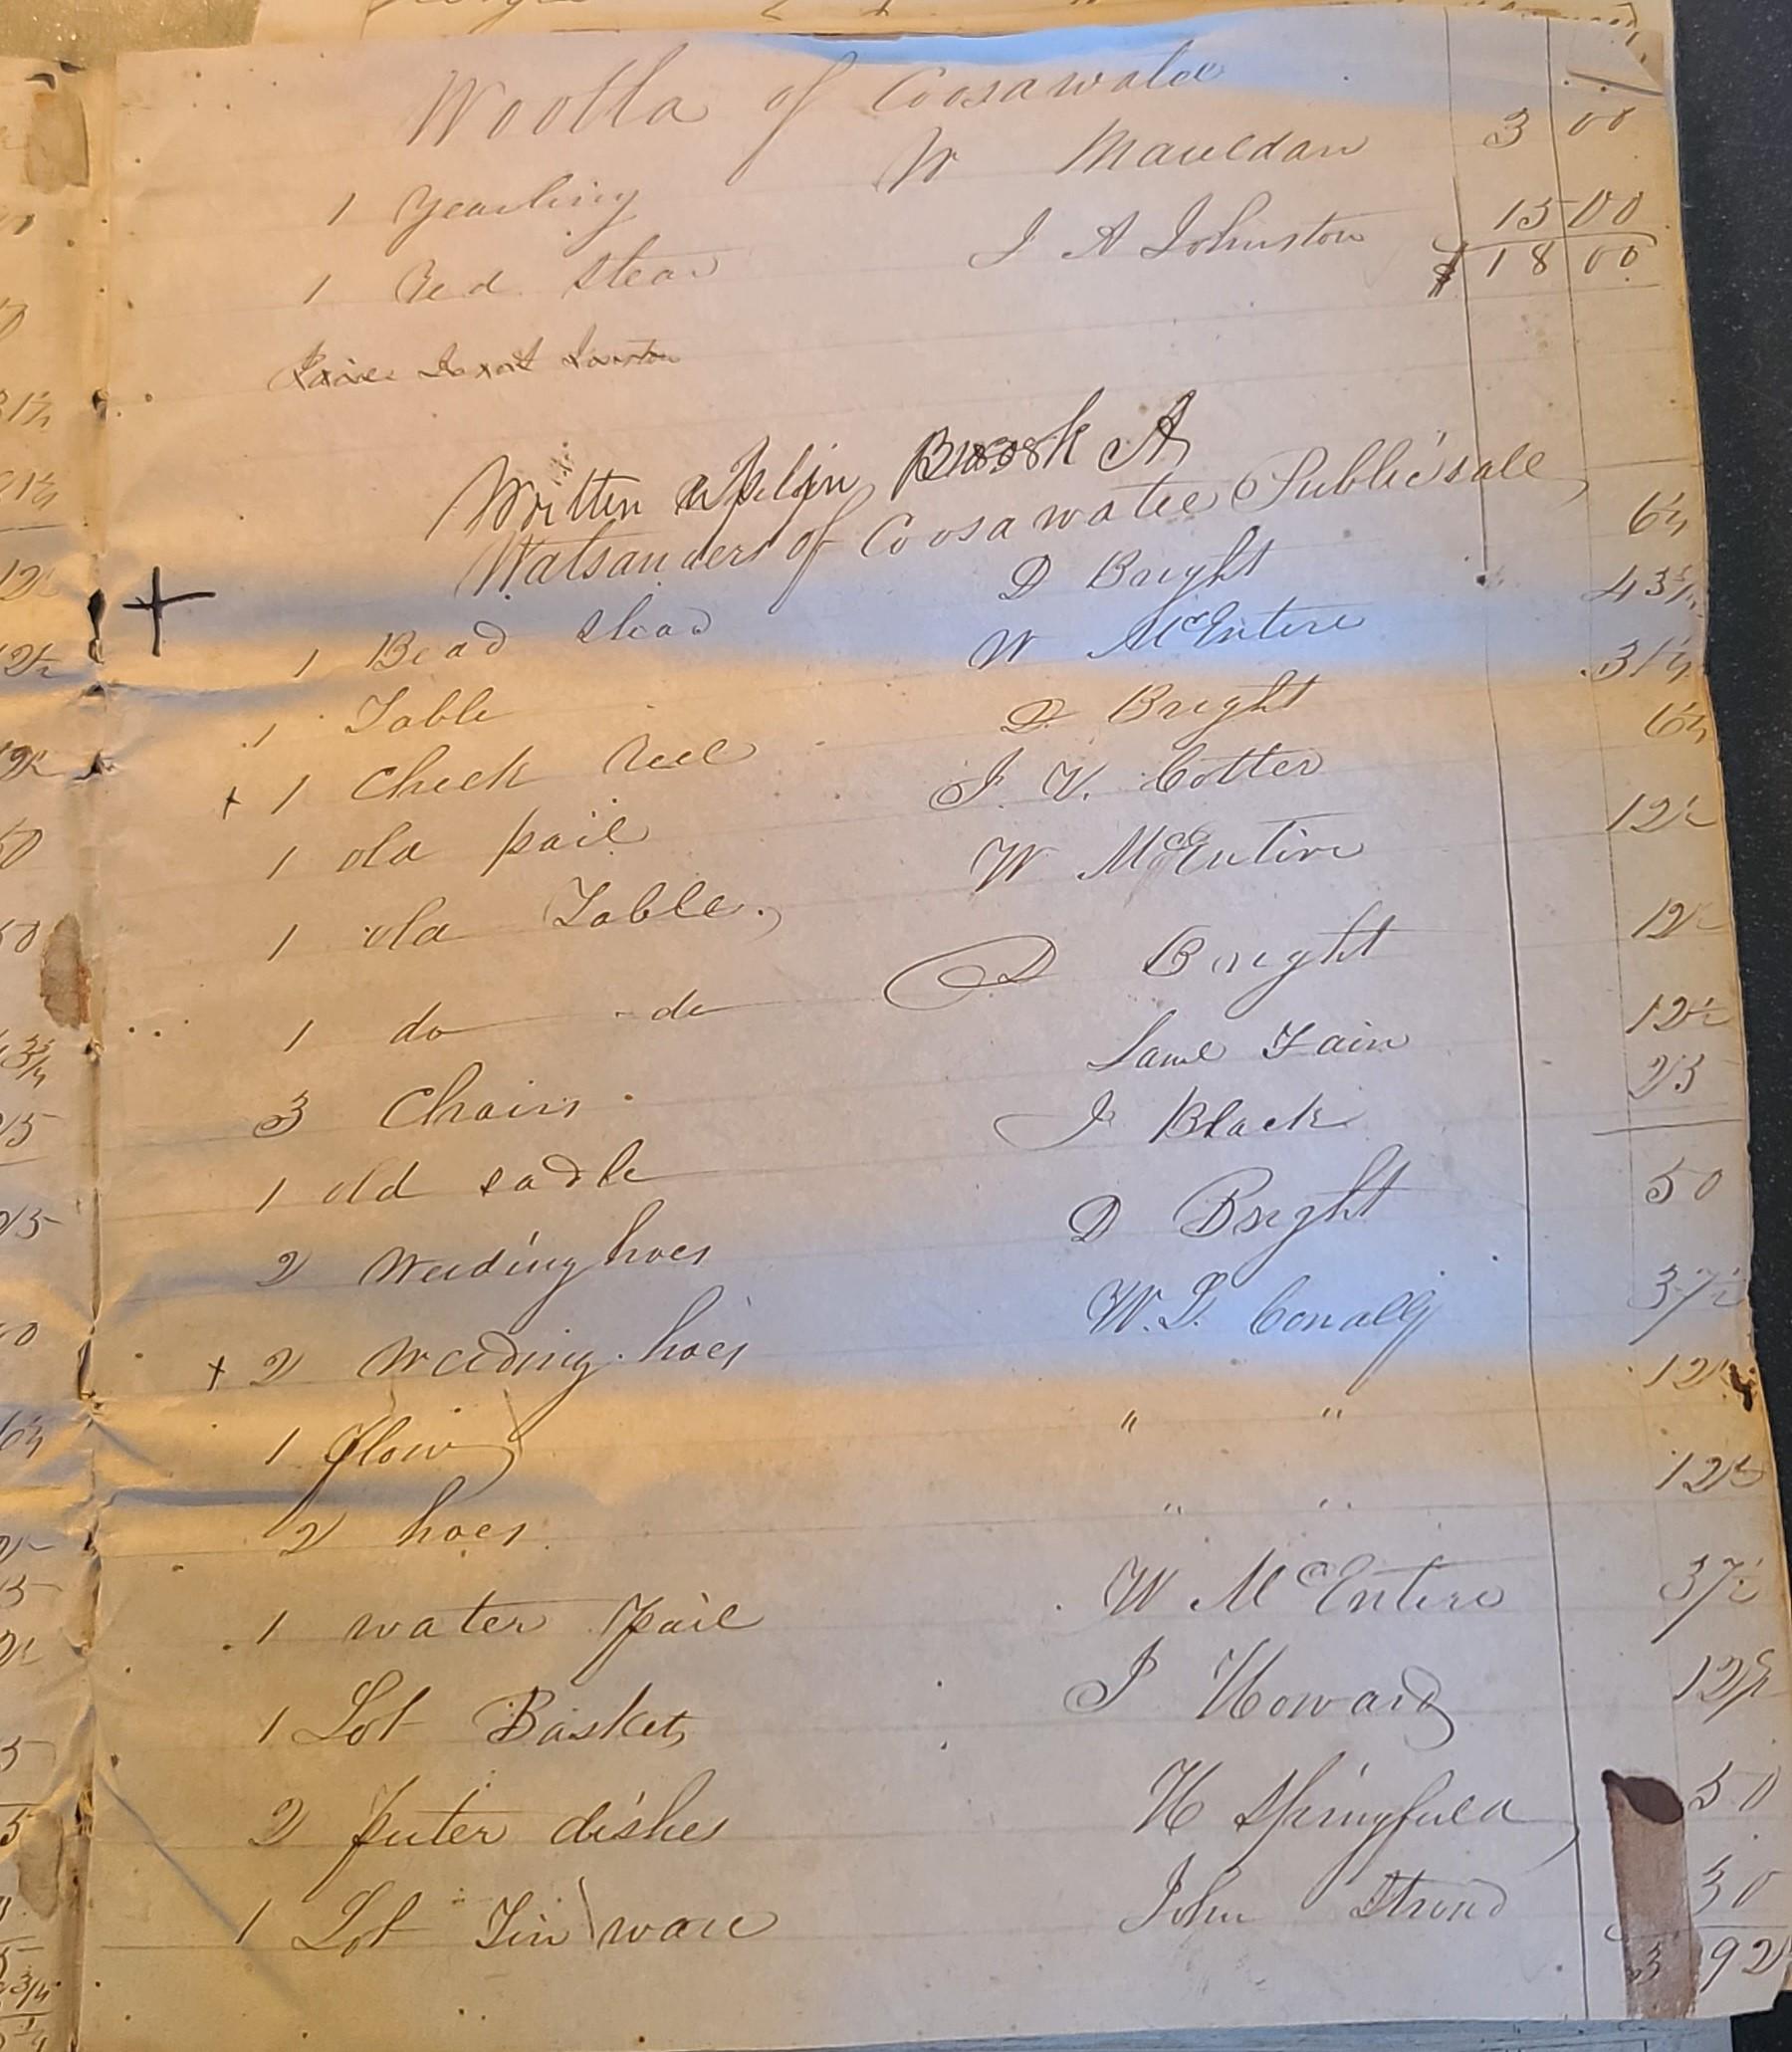 Wootta of Coosawatee
1 Yearling W Mauldan 3 00
1 Red stear J A Johnston 15 00
$18 00
Written up in Book A
Watsanders of Coosawatee Public sale
1 Bead stead D Bright 6¼
1 Table W McEntire 43¾
+ 1 Check Reel D Bright 31¼
1 old pail J. V. Cotter 6¼
1 old Table W McEntire 12½
1 do do D Bright 12½
3 Chairs Saml Fain 12½
1 old sadle J Black 25
2 Weeding hoes D Bright 50
+ 2 Weeding hoes W. P. Conally 37½
1 plow " " 12½
2 hoes " " 12½
1 water pail W McEntire 37½
1 Lot Baskets P Howard 12½
2 puter dishes H Springfield 50
1 Lot Tin ware John Stroud 50
3 92